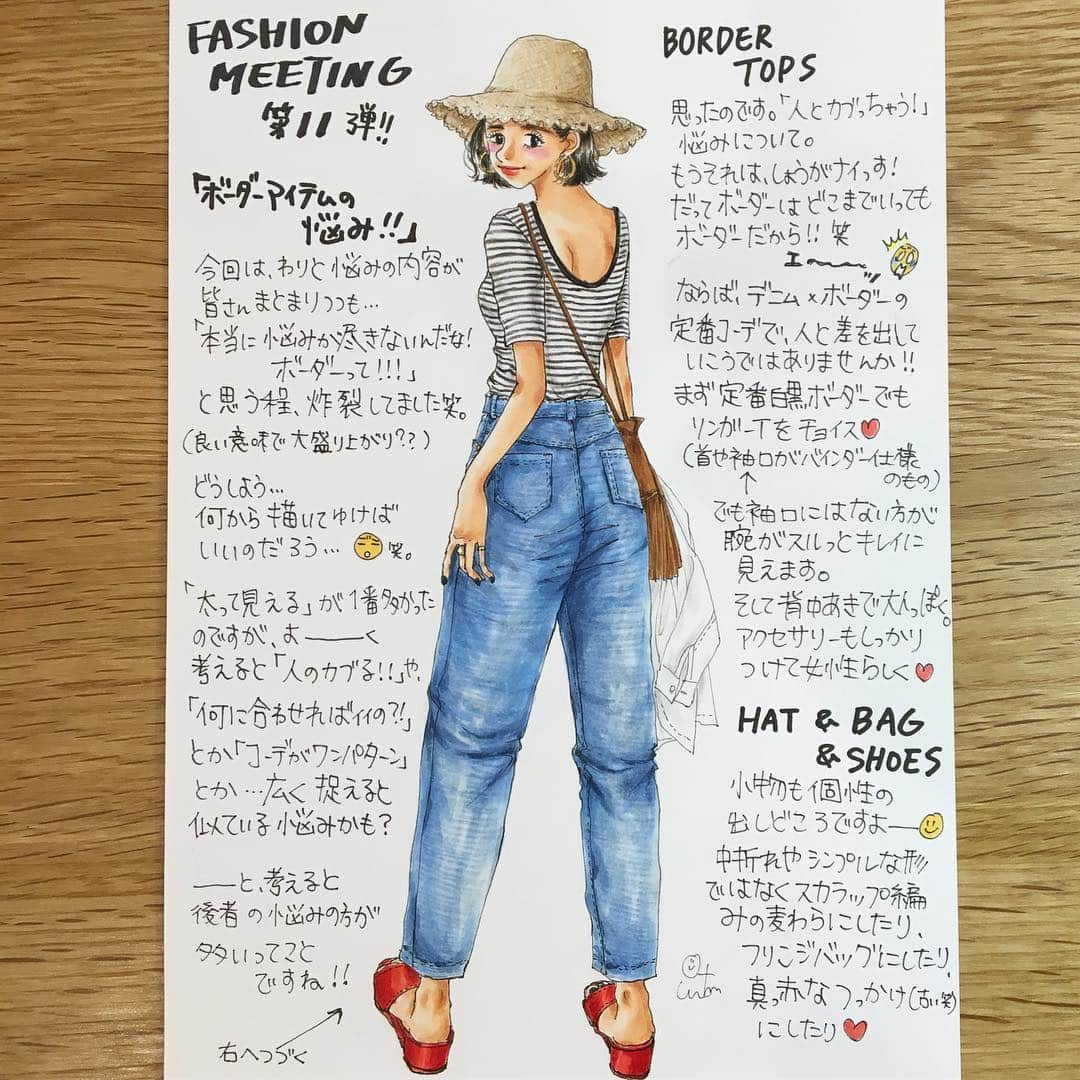 FASHION
MEETING
第11弾!!
「ボーダーアイテムの
悩み!!」
今回は、わりと悩みの内容が
皆さんまとまりつつも…
「本当に悩みが尽きないんだな!
ボーダーって!!!」
と思う程、炸裂してました笑。
(良い意味で大盛り上がり??)
どうしよう…
何から描いてゆけば
いいのだろう… 笑。
「太って見える」が1番多かった
のですが、よーーく
考えると「人のカブる!!」や、
「何に合わせればイイの?!」
とか「コーデがワンパターン」
とか…広く捉えると
似ている悩みかも?
――と、考えると
後者の悩みの方が
多いってこと
ですね!!
右へつづく
BORDER
TOPS
思ったのです。「人とカブっちゃう!」
悩みについて。
もうそれは、しょうがナイっす!
だってボーダーはどこまでいっても
ボーダーだから!! 笑
ならば、デニム×ボーダーの
定番コーデで、人と差を出して
いこうではありませんか!!
まず定番白黒ボーダーでも
リンガーTをチョイス♥
(首や袖口がバインダー仕様
のもの)
↑
でも袖口にはない方が
腕がスルっとキレイに
見えます。
そして背中あきで大人っぽく。
アクセサリーもしっかり
つけて女性らしく♥
HAT & BAG
& SHOES
小物も個性の
出しどころですよー
中折れやシンプルな形
ではなくスカラップ編
みの麦わらにしたり、
フリンジバッグにしたり、
真っ赤なつっかけ(古い笑)
にしたり♥